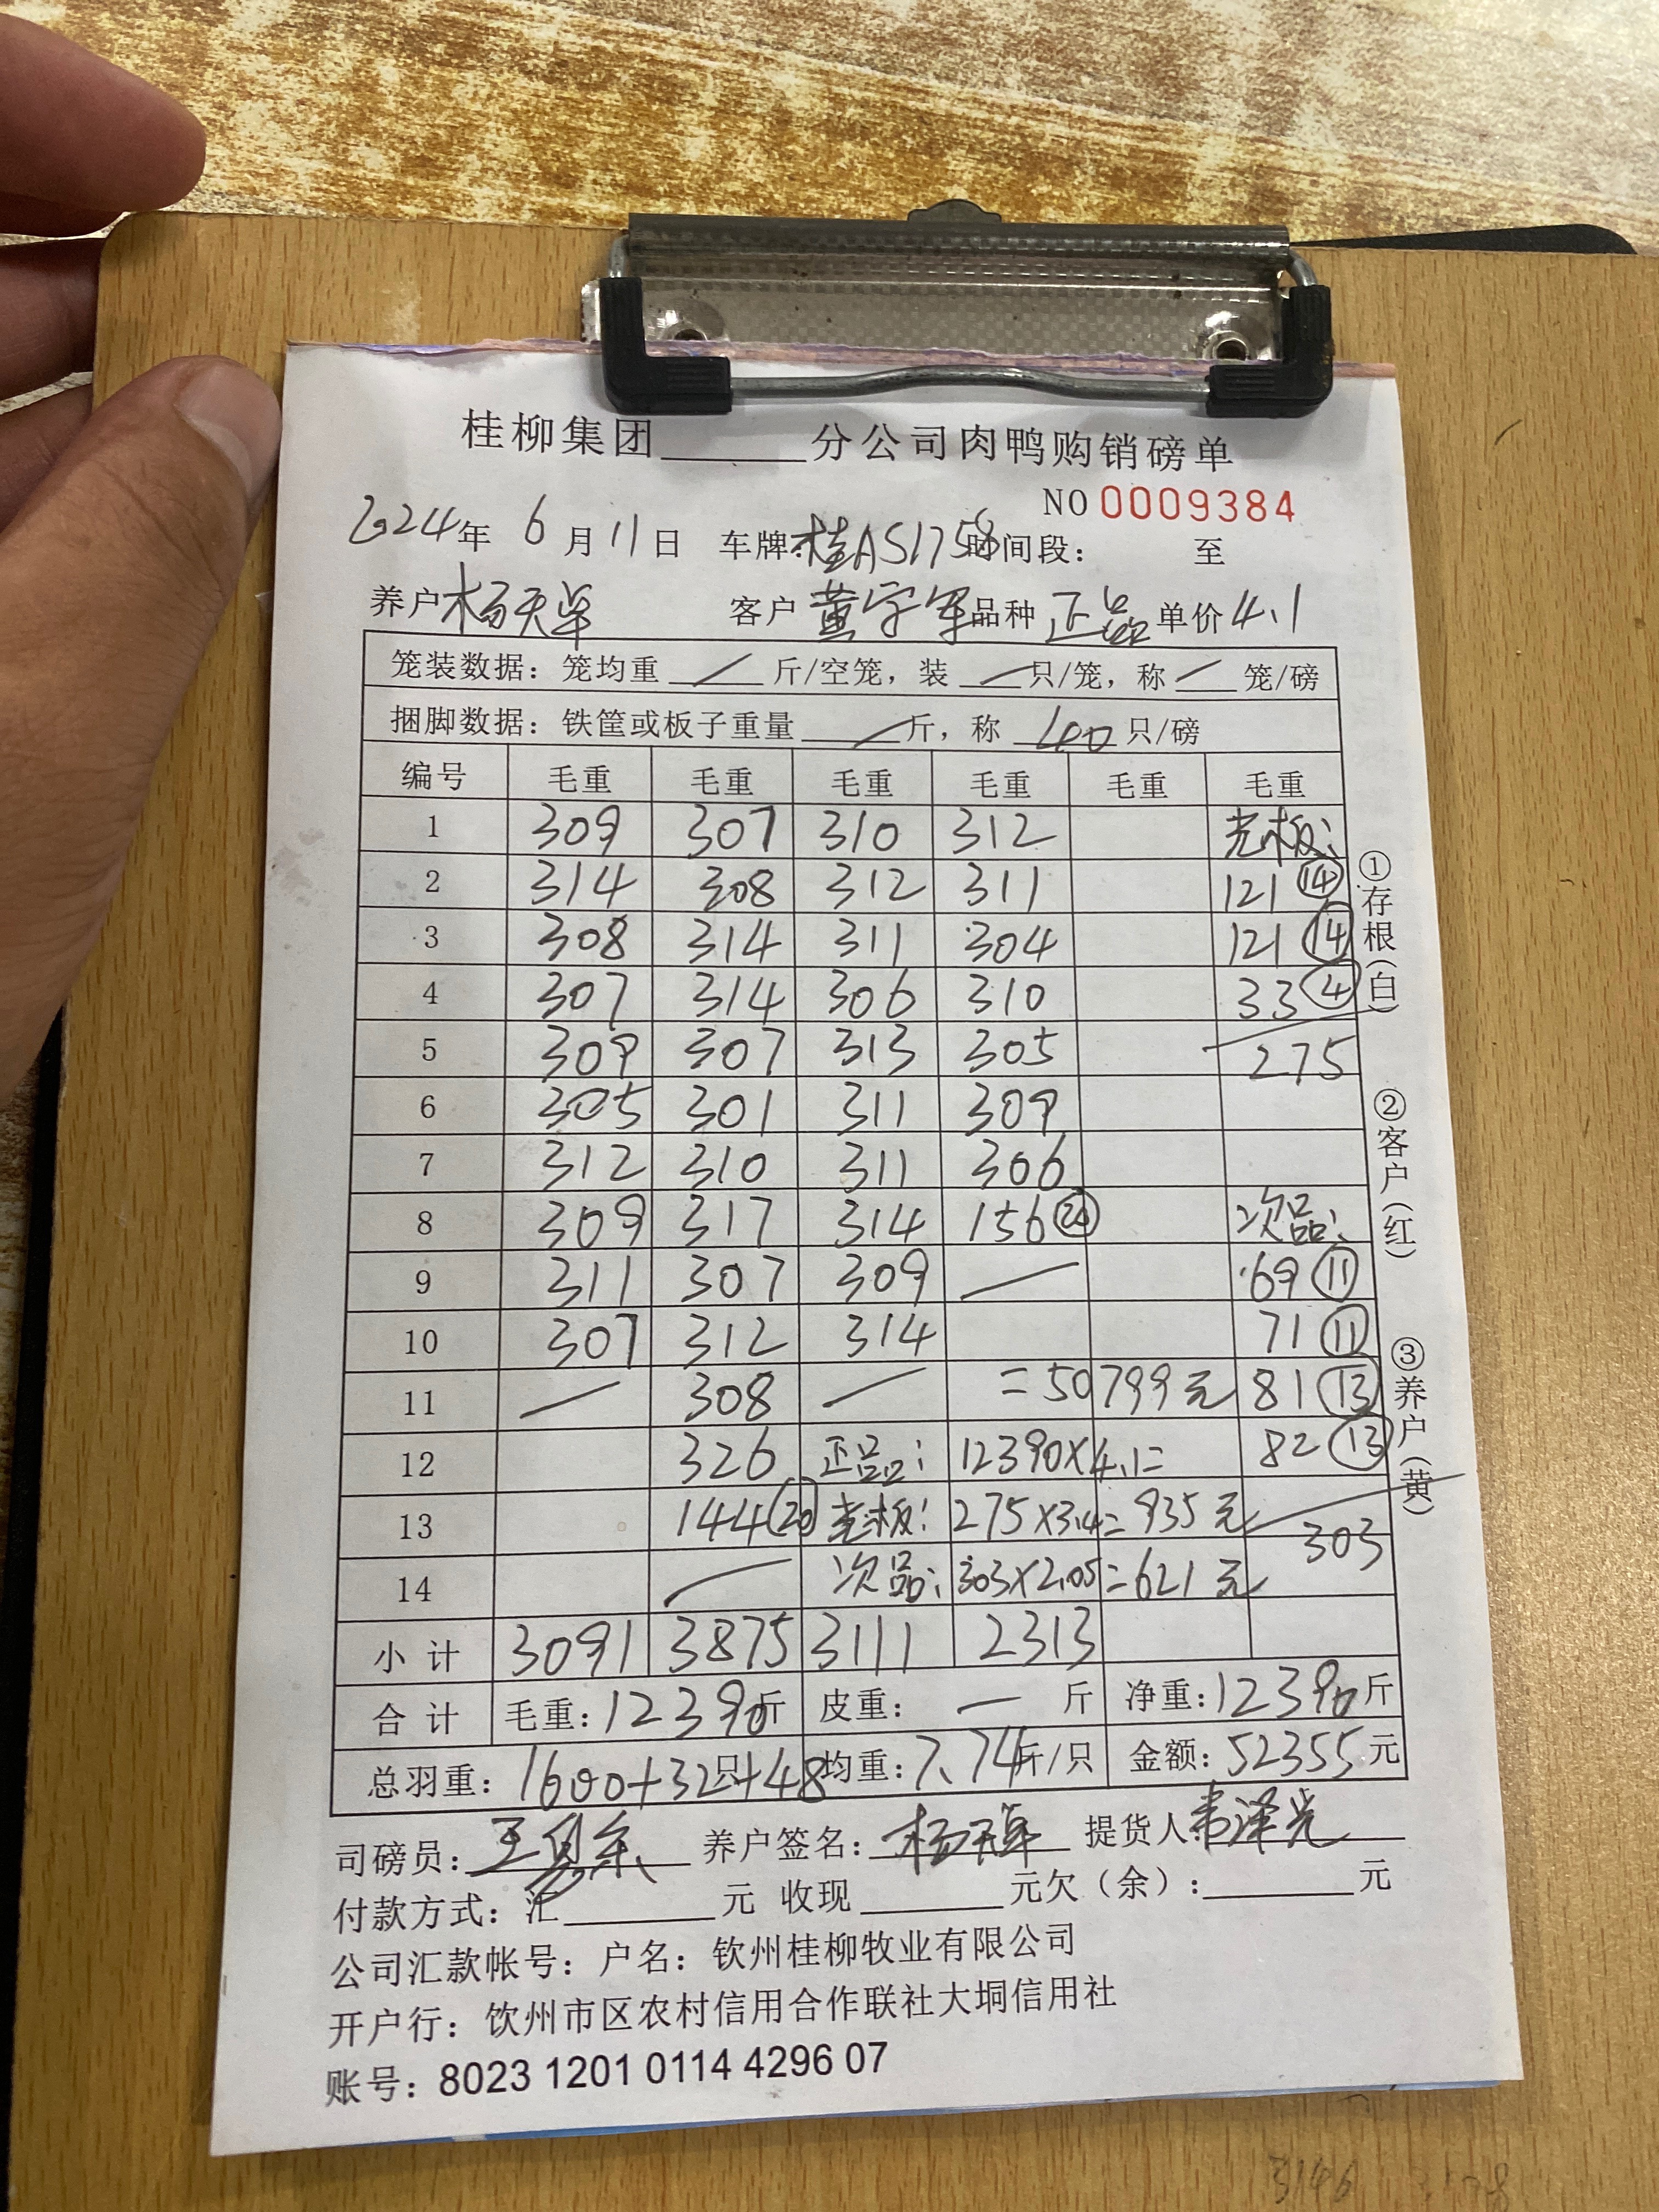 桂柳集团______分公司肉鸭购销磅单
NO 0009384
2024年 6月11日 车牌:桂AS1758 时间段: 至
养户 杨天卓 客户 黄字军 品种 正品 单价 4.1
笼装数据：笼均重 / 斤/空笼，装 / 只/笼，称 / 笼/磅
捆脚数据：铁筐或板子重量 / 斤，称 40 只/磅
编号 毛重 毛重 毛重 毛重 毛重 毛重
1 309 307 310 312 光板:
2 314 308 312 311 121 ⑭
3 308 314 311 304 121 ⑭
4 307 314 306 310 33 ④
5 309 307 313 305 275
6 305 301 311 309
7 312 310 311 306
8 309 317 314 156 ⑳ 次品:
9 311 307 309 / 69 ⑪
10 307 312 314 71 ⑪
11 / 308 / =50799元 81 ⑬
12 326 正品: 12390×4.1= 82 ⑬
13 144 ⑳ 光板: 275×3.4=935元 303
14 / 次品: 303×2.05=621元
小计 3091 3875 3111 2313
合计 毛重:12390斤 皮重: — 斤 净重:12390斤
总羽重: 1600+32只+48 均重:7.74斤/只 金额:52355元
司磅员: 养户签名: 杨天卓 提货人: 韦泽光
付款方式：汇______元 收现______元欠（余）:______元
公司汇款帐号：户名：钦州桂柳牧业有限公司
开户行：钦州市区农村信用合作联社大垌信用社
账号：8023 1201 0114 4296 07
①存根（白）
②客户（红）
③养户（黄）
3146